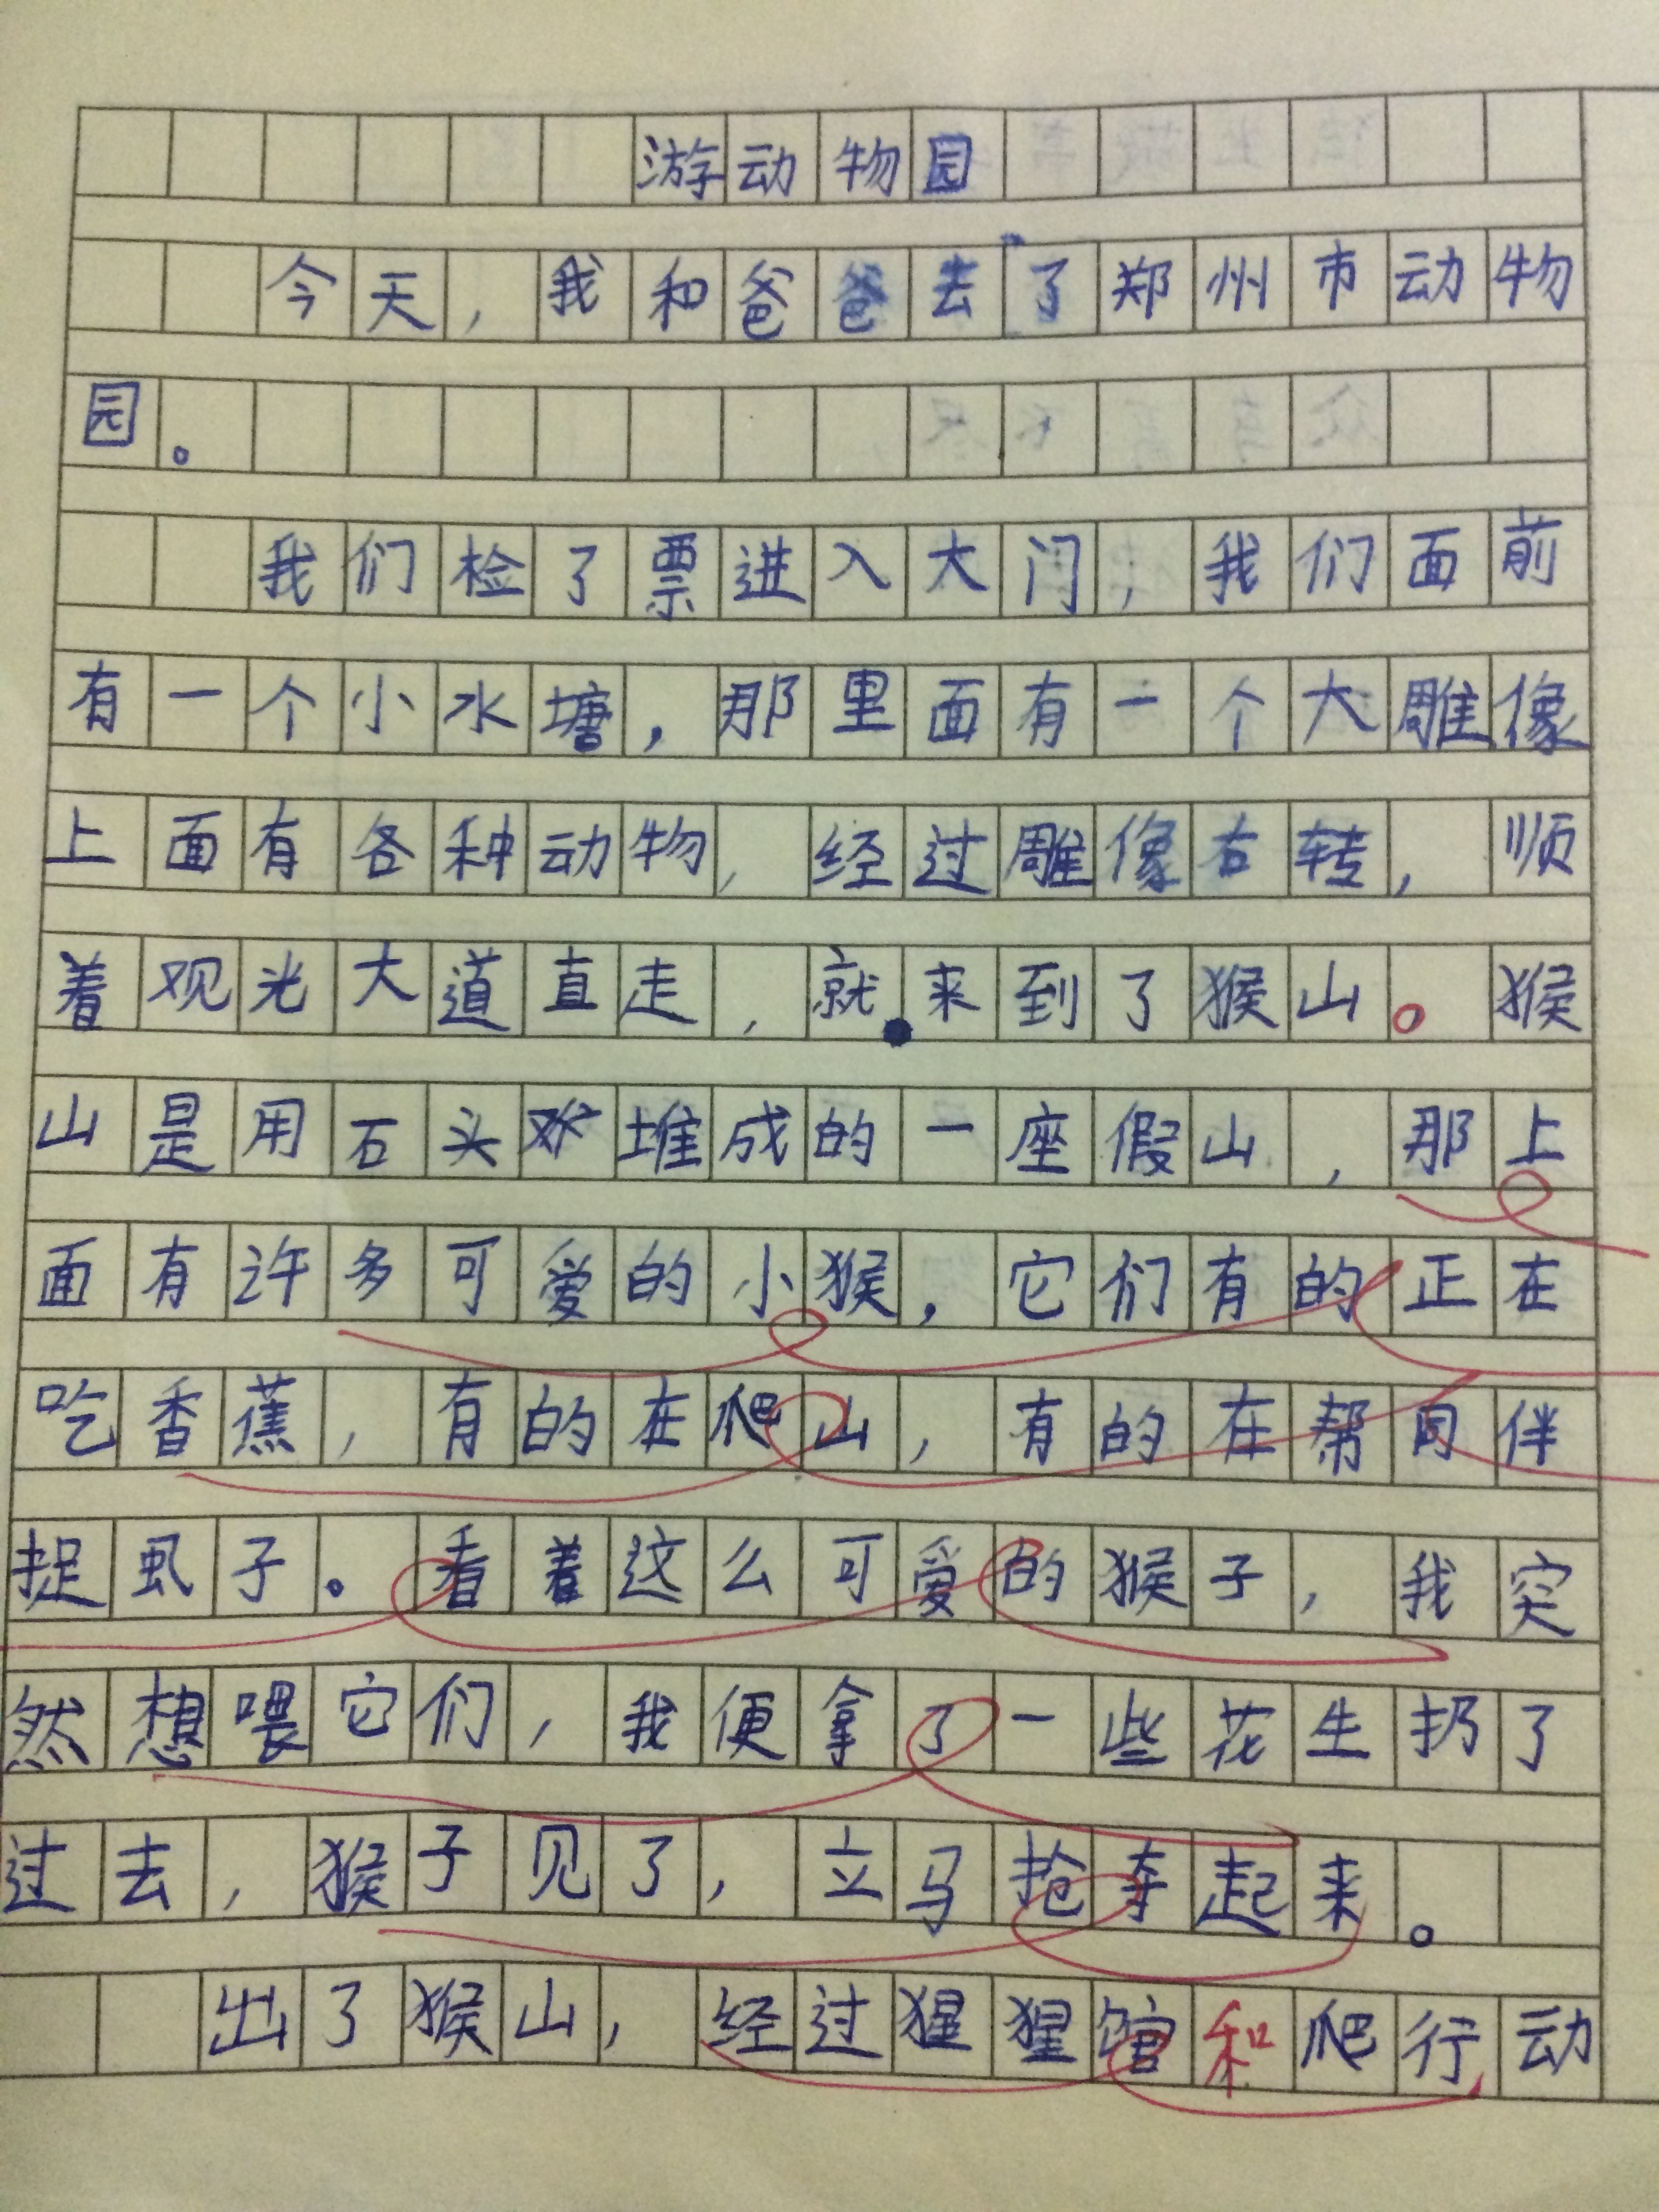 游动物园
今天，我和爸爸去了郑州市动物
园。
我们检了票进入大门，我们面前
有一个小水塘，那里面有一个大雕像
上面有各种动物，经过雕像右转，顺
着观光大道直走，就来到了猴山。猴
山是用石头堆成的一座假山，那上
面有许多可爱的小猴，它们有的正在
吃香蕉，有的在爬山，有的在帮同伴
捉虱子。看着这么可爱的猴子，我突
然想喂它们，我便拿了一些花生扔了
过去，猴子见了，立马抢夺起来。
出了猴山，经过猩猩馆和爬行动